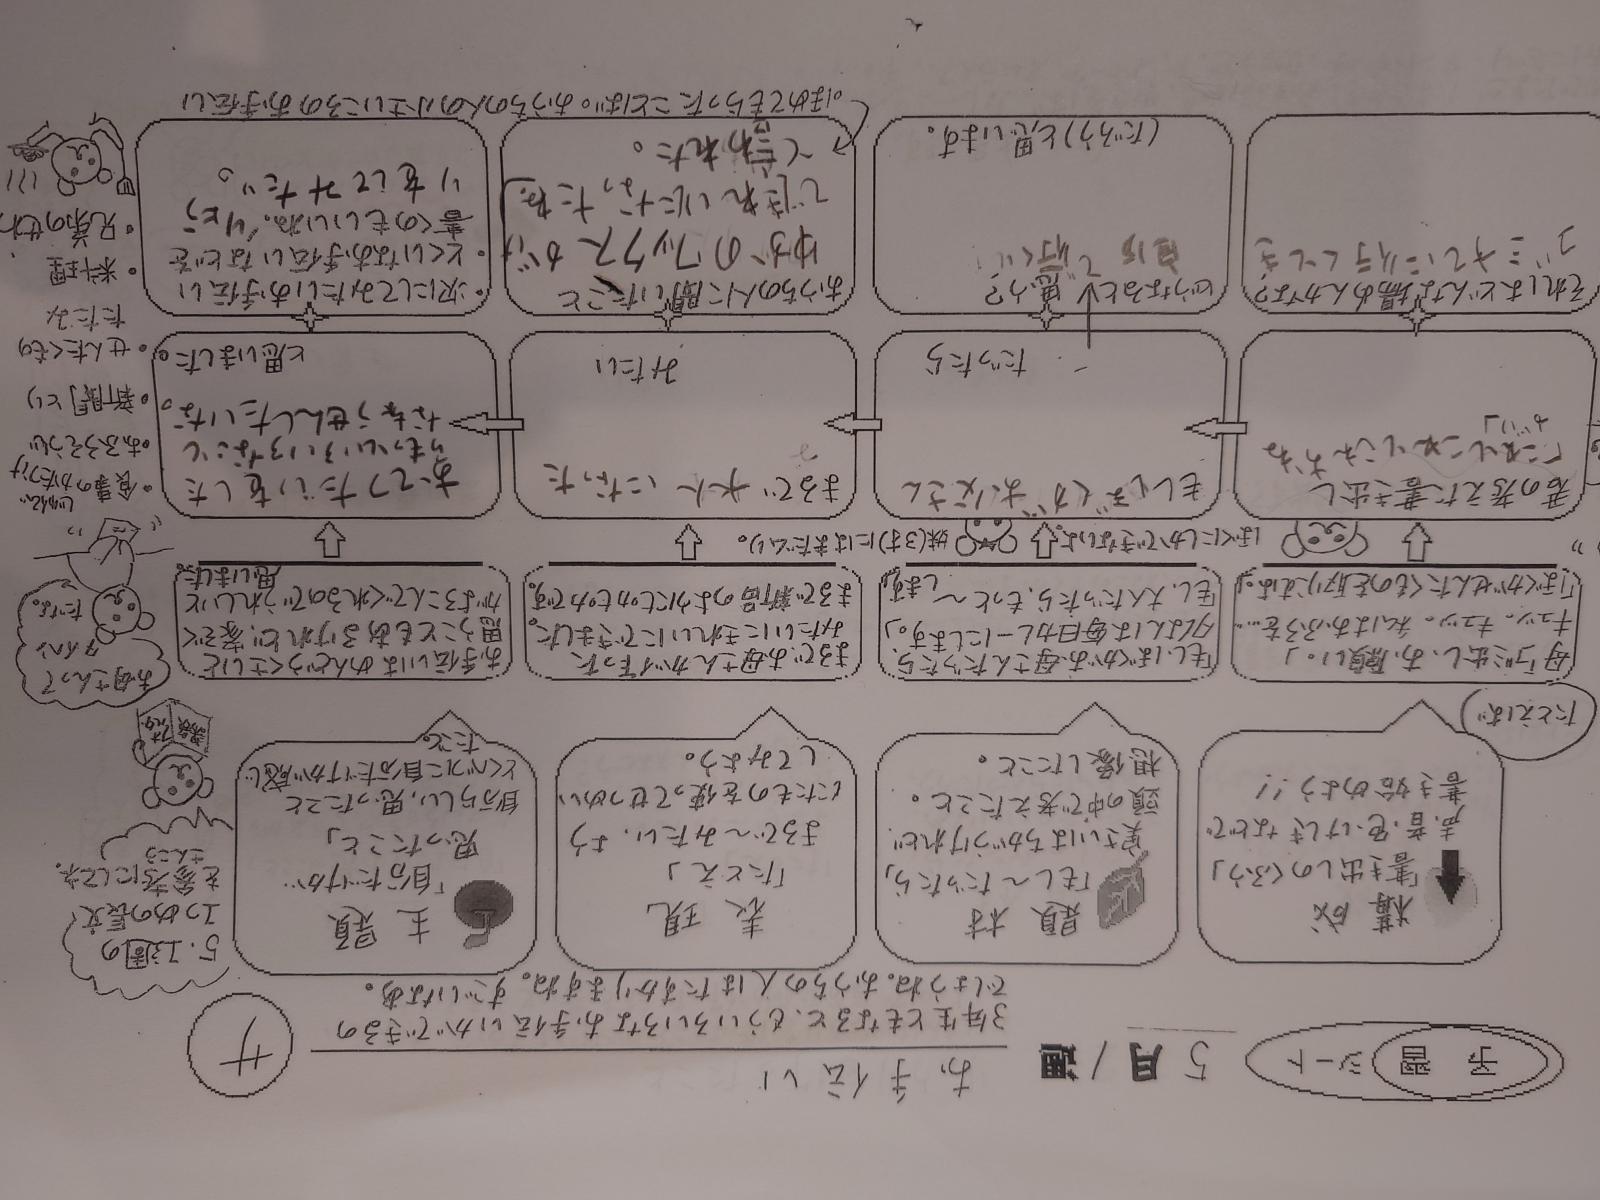 予習
シート
5月1週
お手伝い
サ
3年生ともなると、もういろいろなお手伝いができるの
でしょうね。おうちの人はたすかりますね。すごいなあ。
構成
「書き出しのくふう」
声、音、色、けしきなどで
書き始めよう!!
題材
「もし〜だったら」
実さいはちがうけれど、
頭の中で考えたこと。
想像したこと。
表現
「たとえ」
まるで〜みたい、よう
にたものを使ってせつめい
してみよう。
主題
「自分だけが…
思ったこと」
自分らしい、思ったこと
とくべつに自分だけが感じ
たこと。
5.1週の
1つめの長文
を参考にしてネ。
さんこう
たとえば
母「ゴミ出し、お願い。」
キュッ。キュッ。私はおふろを……
「ぼくがせんたくものを取りこむよ。」
「もし、ぼくがお母さんだったら、
夕ごはんは毎日カレーにします。」
「もし、大人だったら、もっと〜
します。」
まるで、お母さんがやった
みたいにきれいにできました。
まるで新品のようにピカピカです。
お手伝いはめんどうくさいと
思うこともあるけれど、家ぞく
がよろこんでくれるのでうれしいと
思いました。
お母さんって
タイヘン
だな。
ぼくにしかできないよ。
妹(3才)にはまだむり。
君の考えた書き出し
「これもこれもこれもおね
がい」
もしぼくがお父さん
だったら
まるで大人になった
みたい
おてつだいをした
らもっといろいろなことに
ちょうせんしたいな。
と思いました。
それはどんな場めんかな?
ゴミすてに行くとき
どうなると思う?
自分で行く
(だろう)と思います。
おうちの人に聞いたこと
ゆかのワックスがけ
できれいになったね
と言われた。
・次にしてみたいお手伝い
・とくいなお手伝いなどを
書くのもいいね。
りょう
りをしてみたい。
ほめてもらったことば。おうちの人の小さいころのお手伝い
・食事のかたづけ
じゅんび
・おふろそうじ
・新聞とり
・せんたくもの
たたみ
・料理
・兄弟のせわ